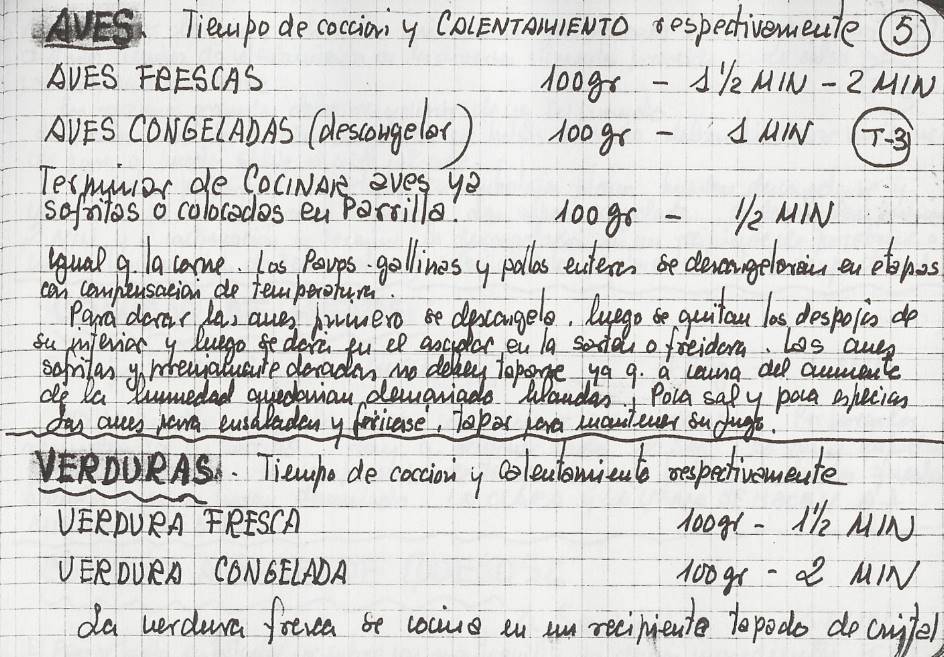 AVES. Tiempo de coccion y CALENTAMIENTO respectivamente (5)
AVES FRESCAS 100gr - 1 1/2 MIN - 2 MIN
AVES CONGELADAS (descongelar) 100 gr - 1 MIN (T-3)
Terminar de COCINAR aves ya
sofritas ó colocadas en Parrilla. 100 gr - 1/2 MIN
Igual q. la carne. Los Pavos - gallinas y pollos enteros se descongelarán en etapas
con compensacion de temperatura.
Para dorar las aves primero se descongela, luego se quitan los despojos de
su interior y luego se dora en el asador en la sarten o freidora. Las aves
sofritas y previamente doradas no deben taparse ya q. a causa del aumento
de la humedad quedarian demasiado blandas. Poca sal y poca especias
Las aves para ensaladas y fricase, tapar para mantener su jugo.
VERDURAS. Tiempo de coccion y calentamiento respectivamente
VERDURA FRESCA 100gr - 1 1/2 MIN
VERDURA CONGELADA 100 gr - 2 MIN
La verdura fresca se cocina en un recipiente tapado de cristal